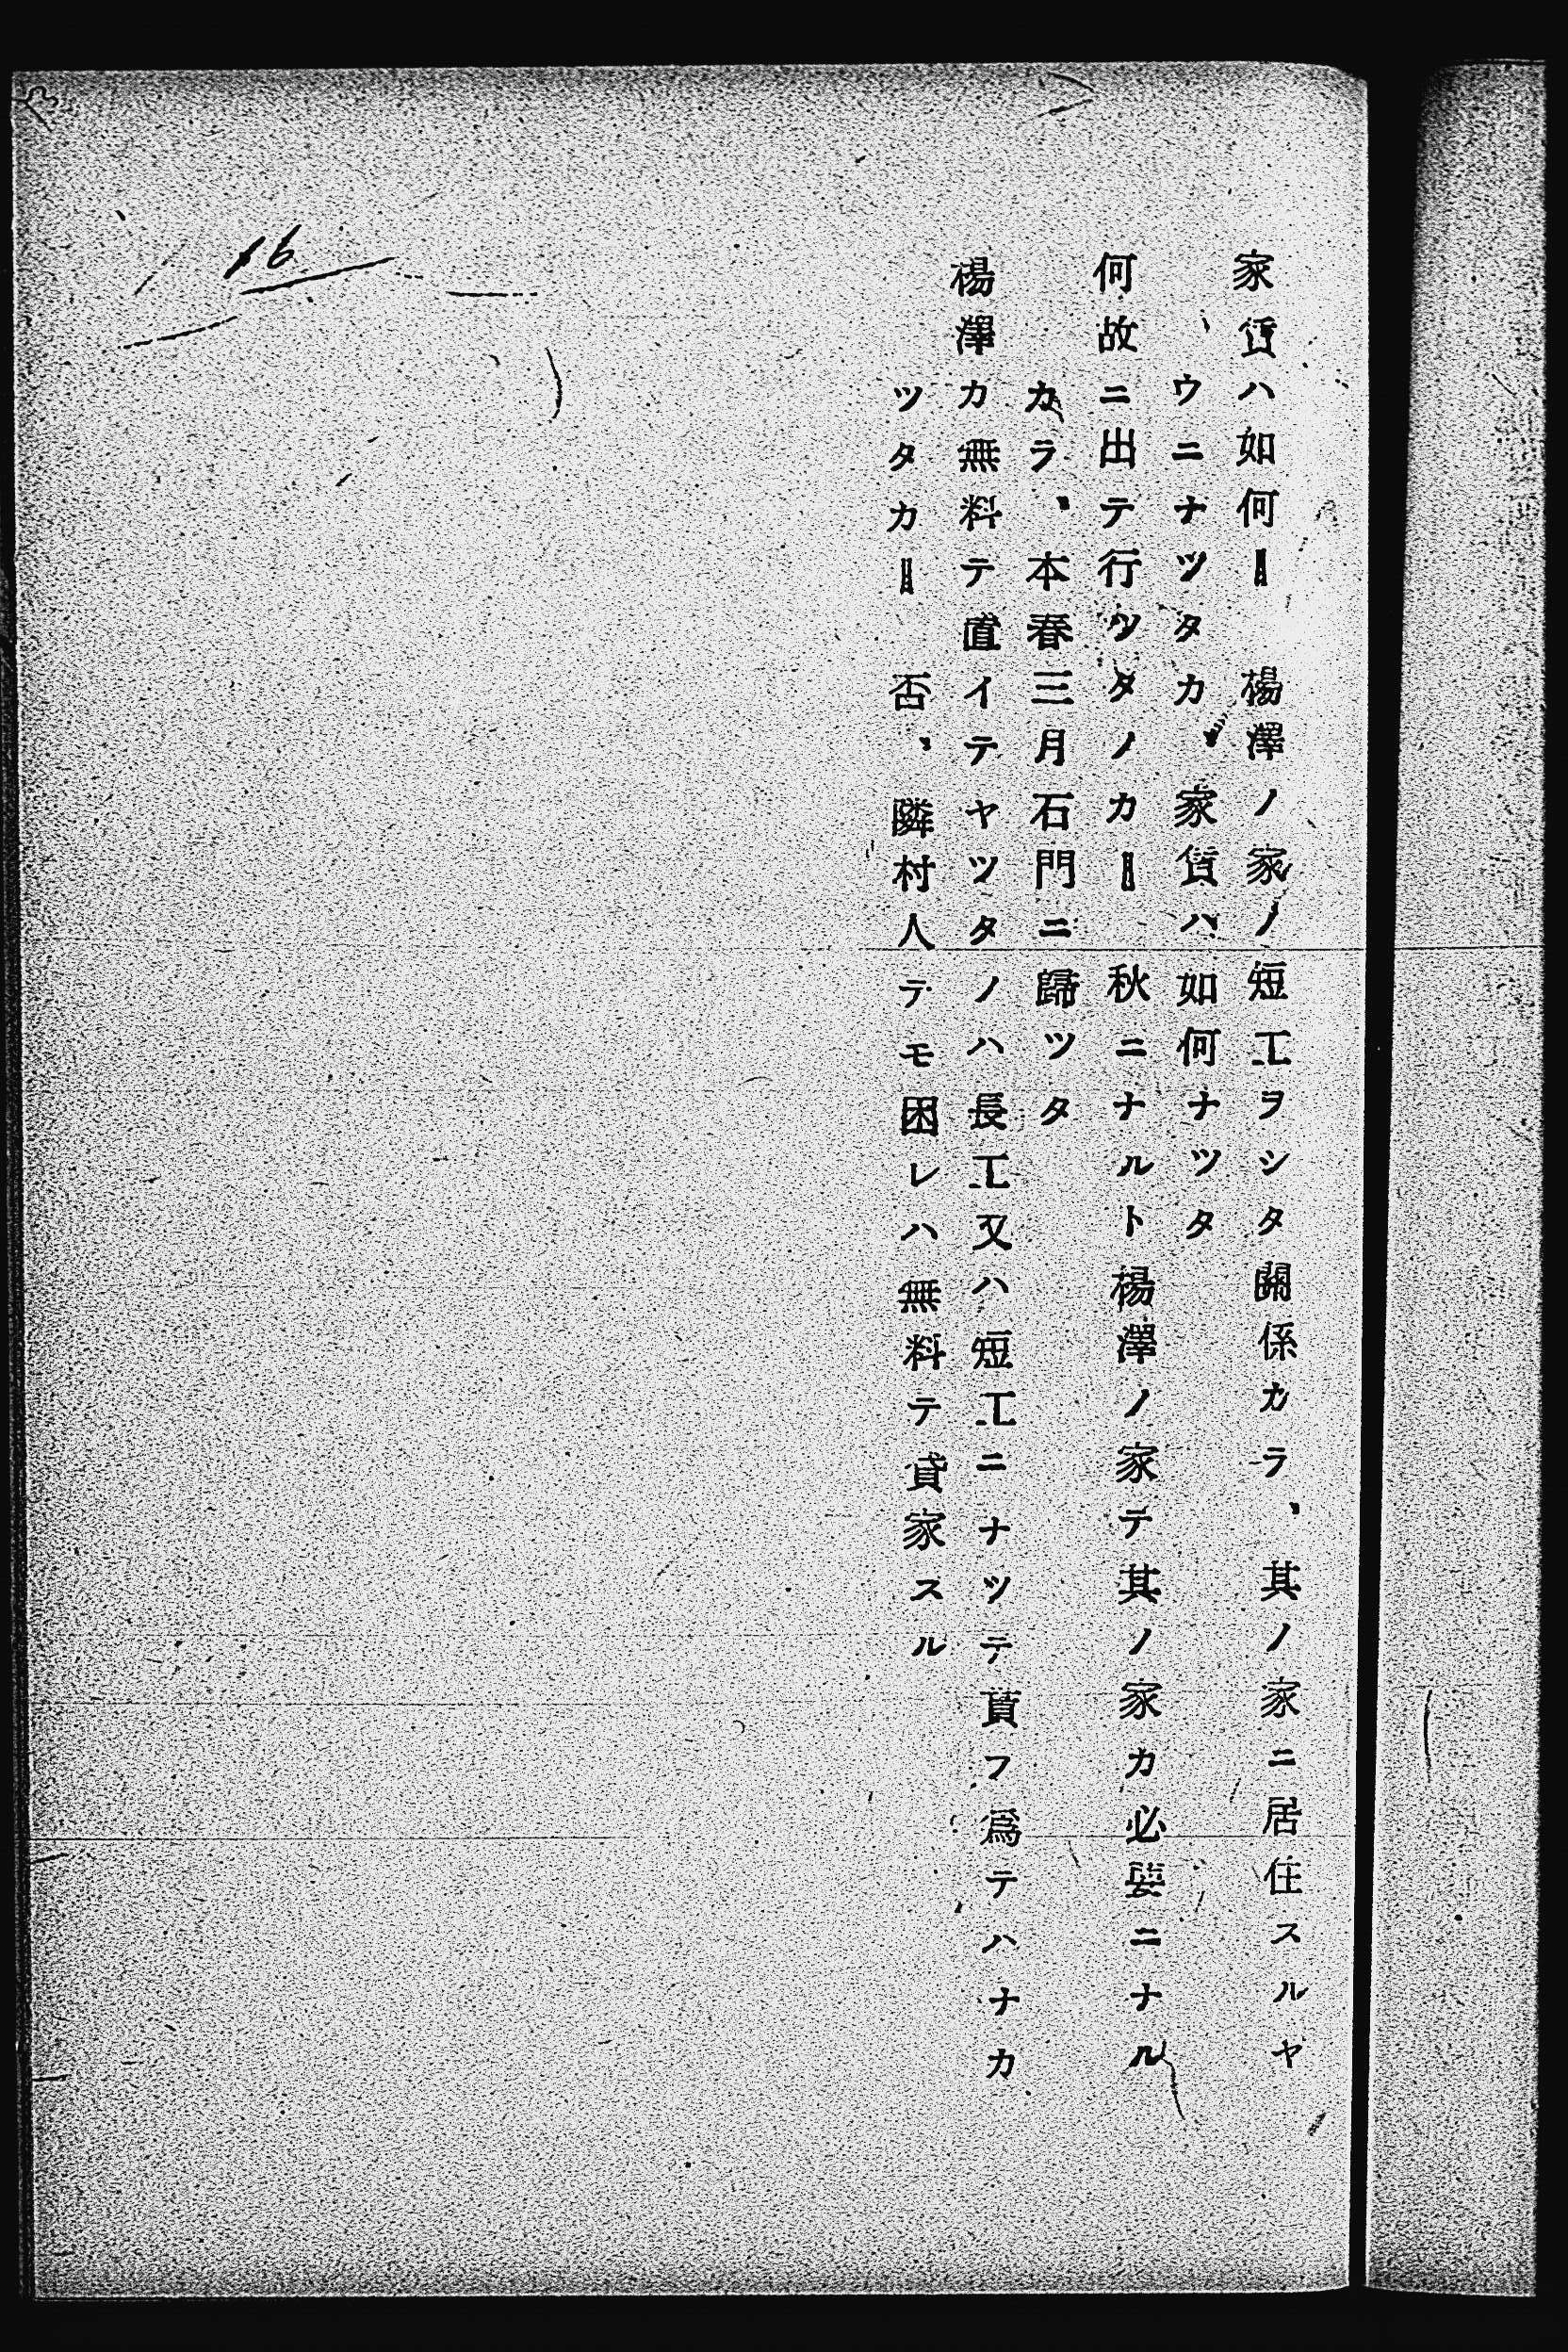 家賃ハ如何ー　楊澤ノ家ノ短工ヲシタ關係カラ、其ノ家ニ居住スルヤ
ウニナツタカ、家賃ハ如何ナツタ
何故ニ出テ行ツタノカー　秋ニナルト楊澤ノ家テ其ノ家カ必要ニナル
カラ、本春三月石門ニ歸ツタ
楊澤カ無料テ置イテヤツタノハ長工又ハ短工ニナツテ貰フ爲テハナカ
ツタカー　否、隣村人テモ困レハ無料テ貸家スル
16